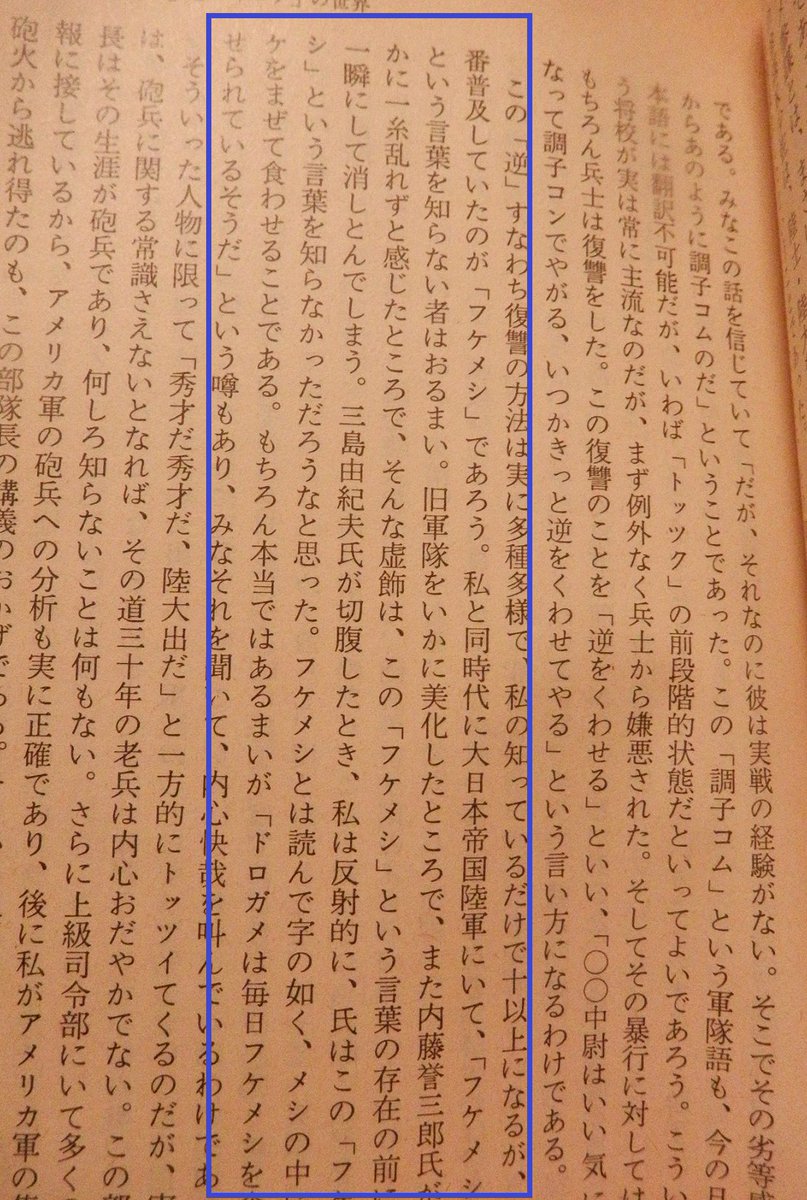 の世界
である。みなこの話を信じていて「だが、それなのに彼は実戦の経験がない。そこでその劣等
からあのように調子コムのだ」ということであった。この「調子コム」という軍隊語も、今の日
本語には翻訳不可能だが、いわば「トッツク」の前段階的状態だといってよいであろう。こうい
う将校が実は常に主流なのだが、まず例外なく兵士から嫌悪された。そしてその暴行に対しては
もちろん兵士は復讐をした。この復讐のことを「逆をくわせる」といい、「〇〇中尉はいい気に
なって調子コンでやがる、いつかきっと逆をくわせてやる」という言い方になるわけである。
この「逆」すなわち復讐の方法は実に多種多様で、私の知っているだけで十以上になるが、
番普及していたのが「フケメシ」であろう。私と同時代に大日本帝国陸軍にいて、「フケメシ
という言葉を知らない者はおるまい。旧軍隊をいかに美化したところで、また内藤誉三郎氏が
かに一糸乱れずと感じたところで、そんな虚飾は、この「フケメシ」という言葉の存在の前に
一瞬にして消しとんでしまう。三島由紀夫氏が切腹したとき、私は反射的に、氏はこの「フ
シ」という言葉を知らなかっただろうなと思った。フケメシとは読んで字の如く、メシの中
ケをまぜて食わせることである。もちろん本当ではあるまいが「ドロガメは毎日フケメシを
せられているそうだ」という噂もあり、みなそれを聞いて、内心快哉を叫んでいるわけであ
そういった人物に限って「秀才だ秀才だ、陸大出だ」と一方的にトッツイてくるのだが、
は、砲兵に関する常識さえないとなれば、その道三十年の老兵は内心おだやかでない。この
長はその生涯が砲兵であり、何しろ知らないことは何もない。さらに上級司令部にいて多く
報に接しているから、アメリカ軍の砲兵への分析も実に正確であり、後に私がアメリカ軍の
砲火から逃れ得たのも、この部隊長の講義のおかげである。